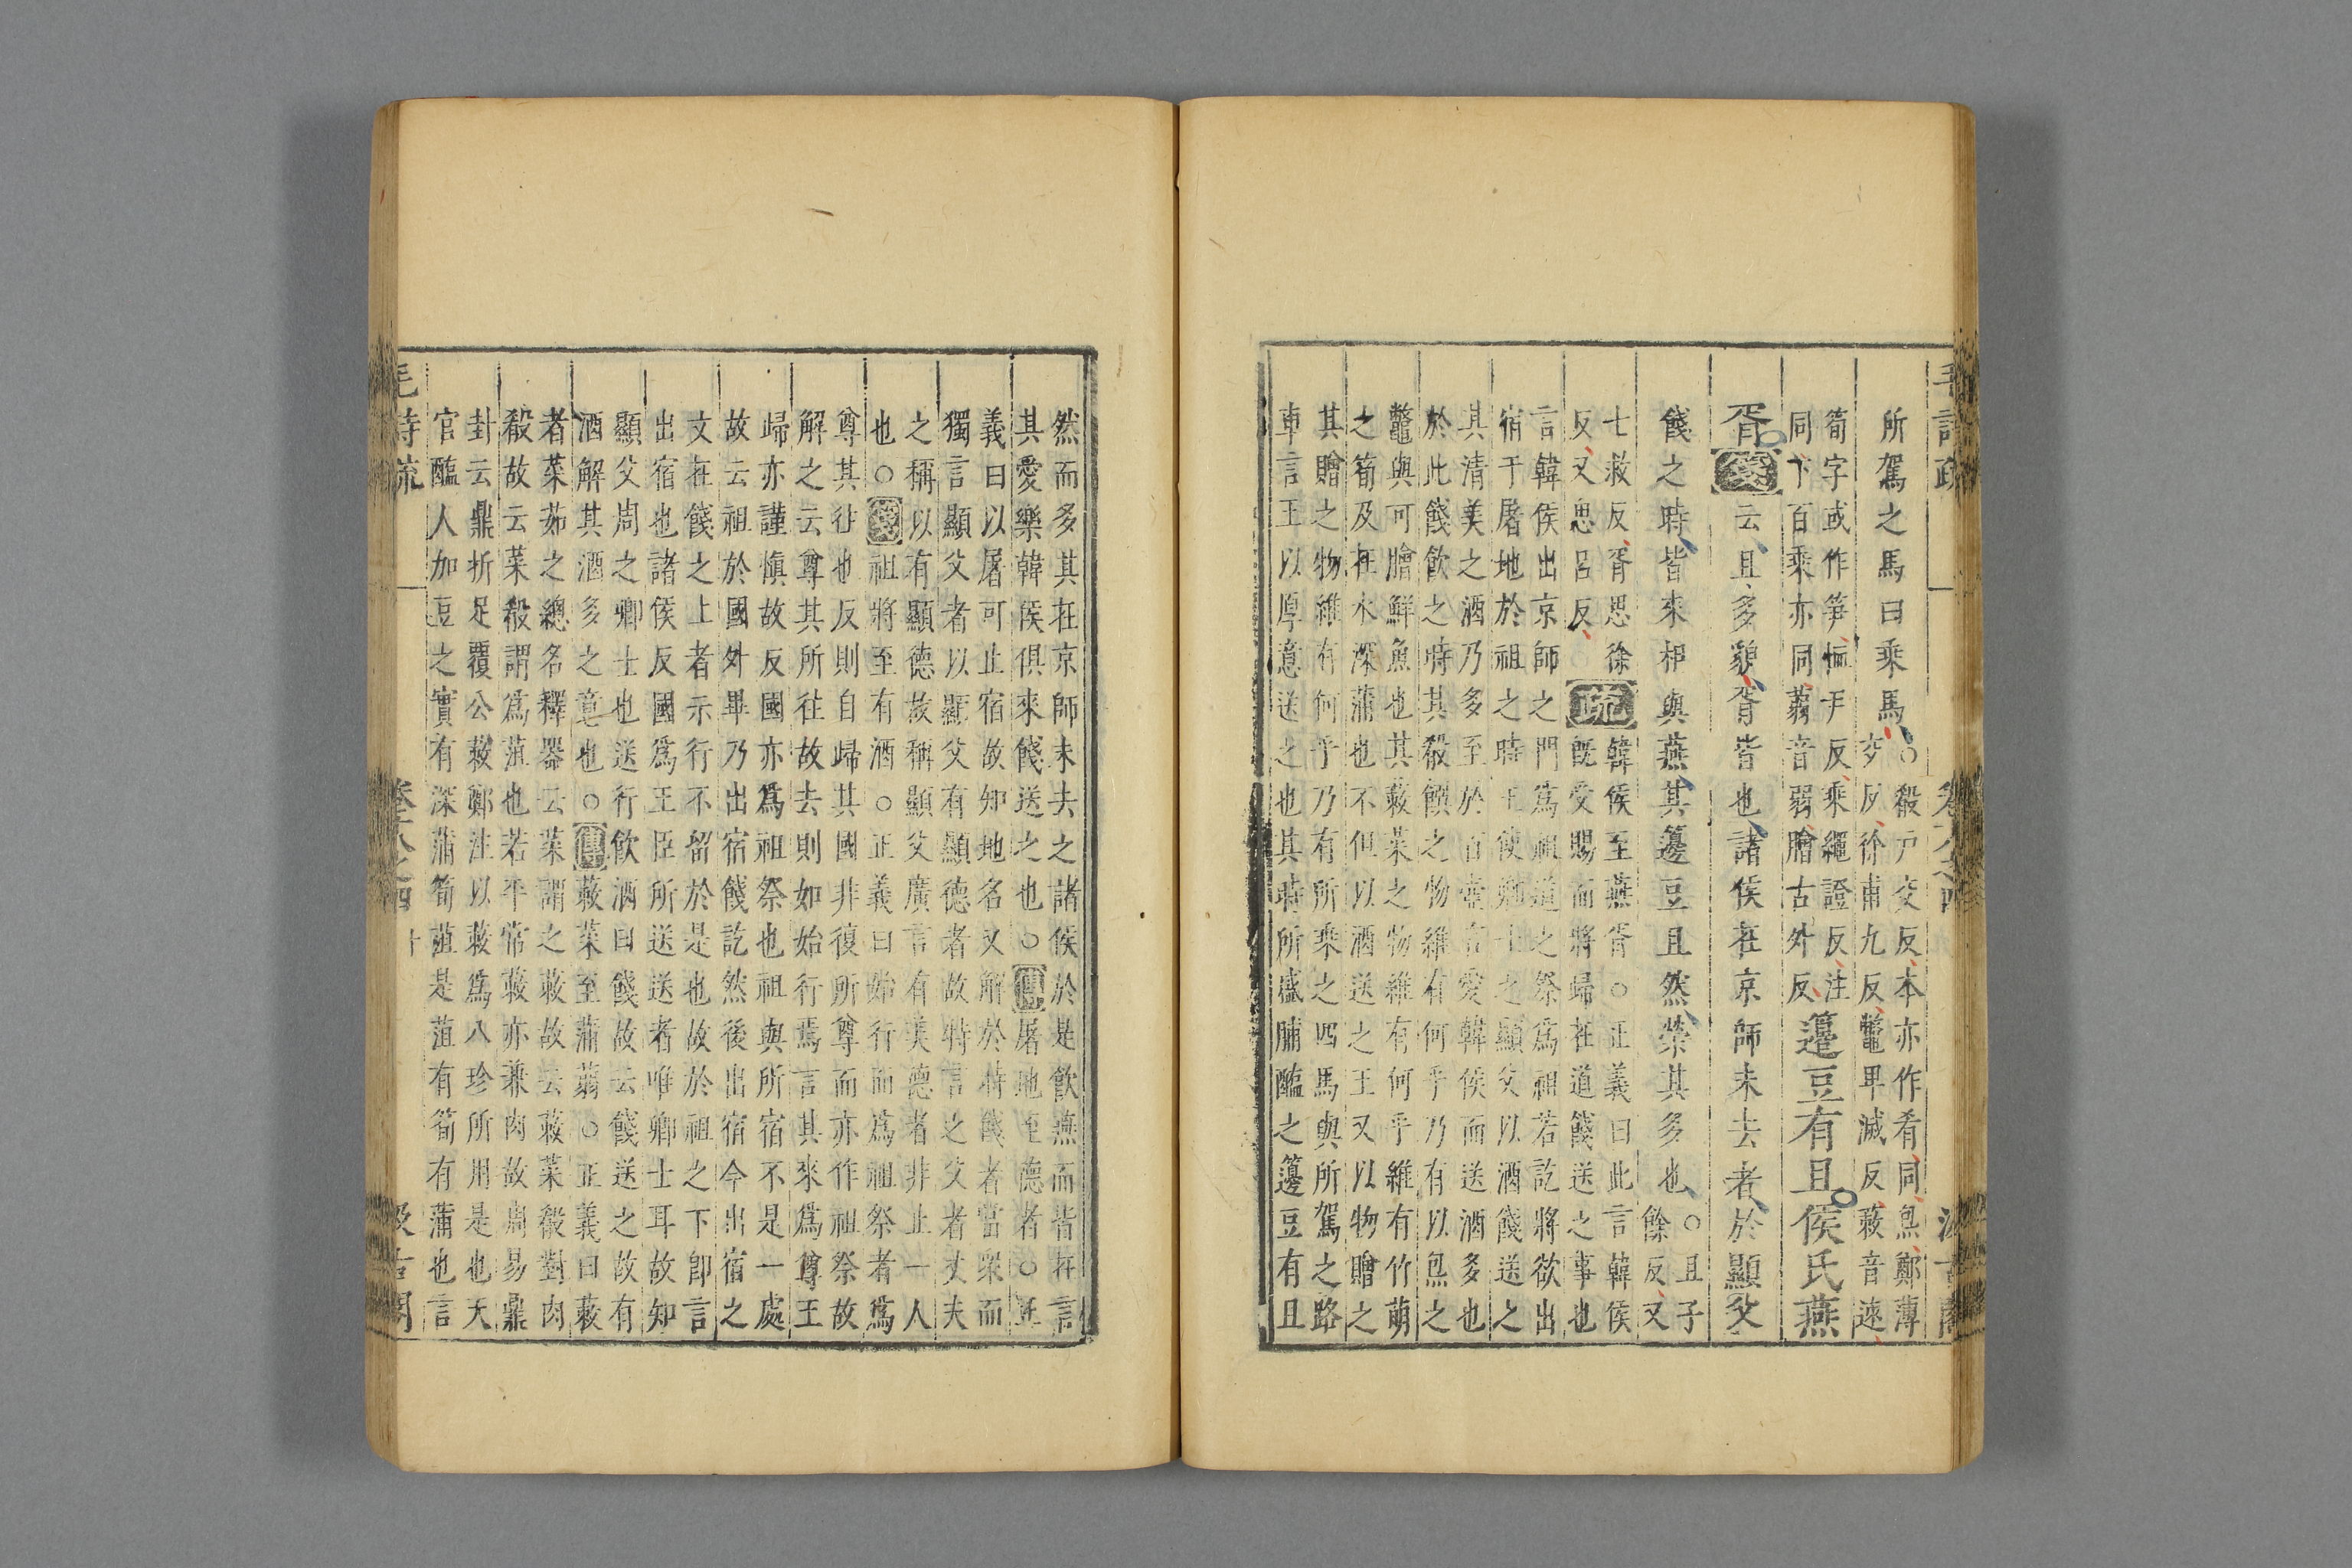 所駕之馬曰乘馬
○殽戸交反本亦作肴同炰鄭薄
交反徐甫九反鼈卑滅反蔌音速
筍字或作笋恤尹反乘繩證反注
同下百乘亦同蒻音弱膾古外反
籩豆有且侯氏燕
胥箋云且多貌胥皆也諸侯在京師未去者於顯父
餞之時皆來相與燕其籩豆且然榮其多也
○且子
餘反又
七救反胥思徐
反又思呂反
疏
韓侯至燕胥○正義曰此言韓侯
既受賜而將歸在道餞送之事也
言韓侯出京師之門為祖道之祭為祖若訖將欲出
宿于屠地於祖之時王使卿士之顯父以酒餞送之
其清美之酒乃多至於百壺言愛韓侯而送酒多也
於此餞飲之時其殽饌之物維有何乎乃有以炰之
鼈與可膾鮮魚也其蔌菜之物維有何乎維有竹萌
之筍及在水深蒲也不但以酒送之王又以物贈之
其贈之物維有何乎乃有所乘之四馬與所駕之路
車言王以厚意送之也其時所盛脯醢之籩豆有且
然而多其在京師未去之諸侯於是飲燕而皆在言
其愛樂韓侯俱來餞送之也○傳屠地至德者○正
義曰以屠可止宿故知地名又解於時餞者當衆而
獨言顯父者以顯父有顯德者故特言之父者丈夫
之稱以有顯德故稱顯父廣言有美德者非止一人
也○箋祖將至有酒○正義曰始行而為祖祭者為
尊其往也反則自歸其國非復所尊而亦作祖祭故
解之云尊其所往故去則如始行焉言其來為尊王
歸亦謹慎故反國亦為祖祭也祖與所宿不是一處
故云祖於國外畢乃出宿餞訖然後出宿今出宿之
文在餞之上者示行不留於是也故於祖之下即言
出宿也諸侯反國為王臣所送送者唯卿士耳故知
顯父周之卿士也送行飲酒曰餞故云餞送之故有
酒解其酒多之意也○傳蔌菜至蒲蒻○正義曰蔌
者菜茹之總名釋器云菜謂之蔌故云蔌菜殽對肉
殽故云菜殽謂為菹也若平常蔌亦兼肉故周易鼎
卦云鼎折足覆公蔌鄭注以蔌為八珍所用是也天
官醢人加豆之實有深蒲筍菹是菹有筍有蒲也言
毛詩疏
卷十八之四
十
汲古閣